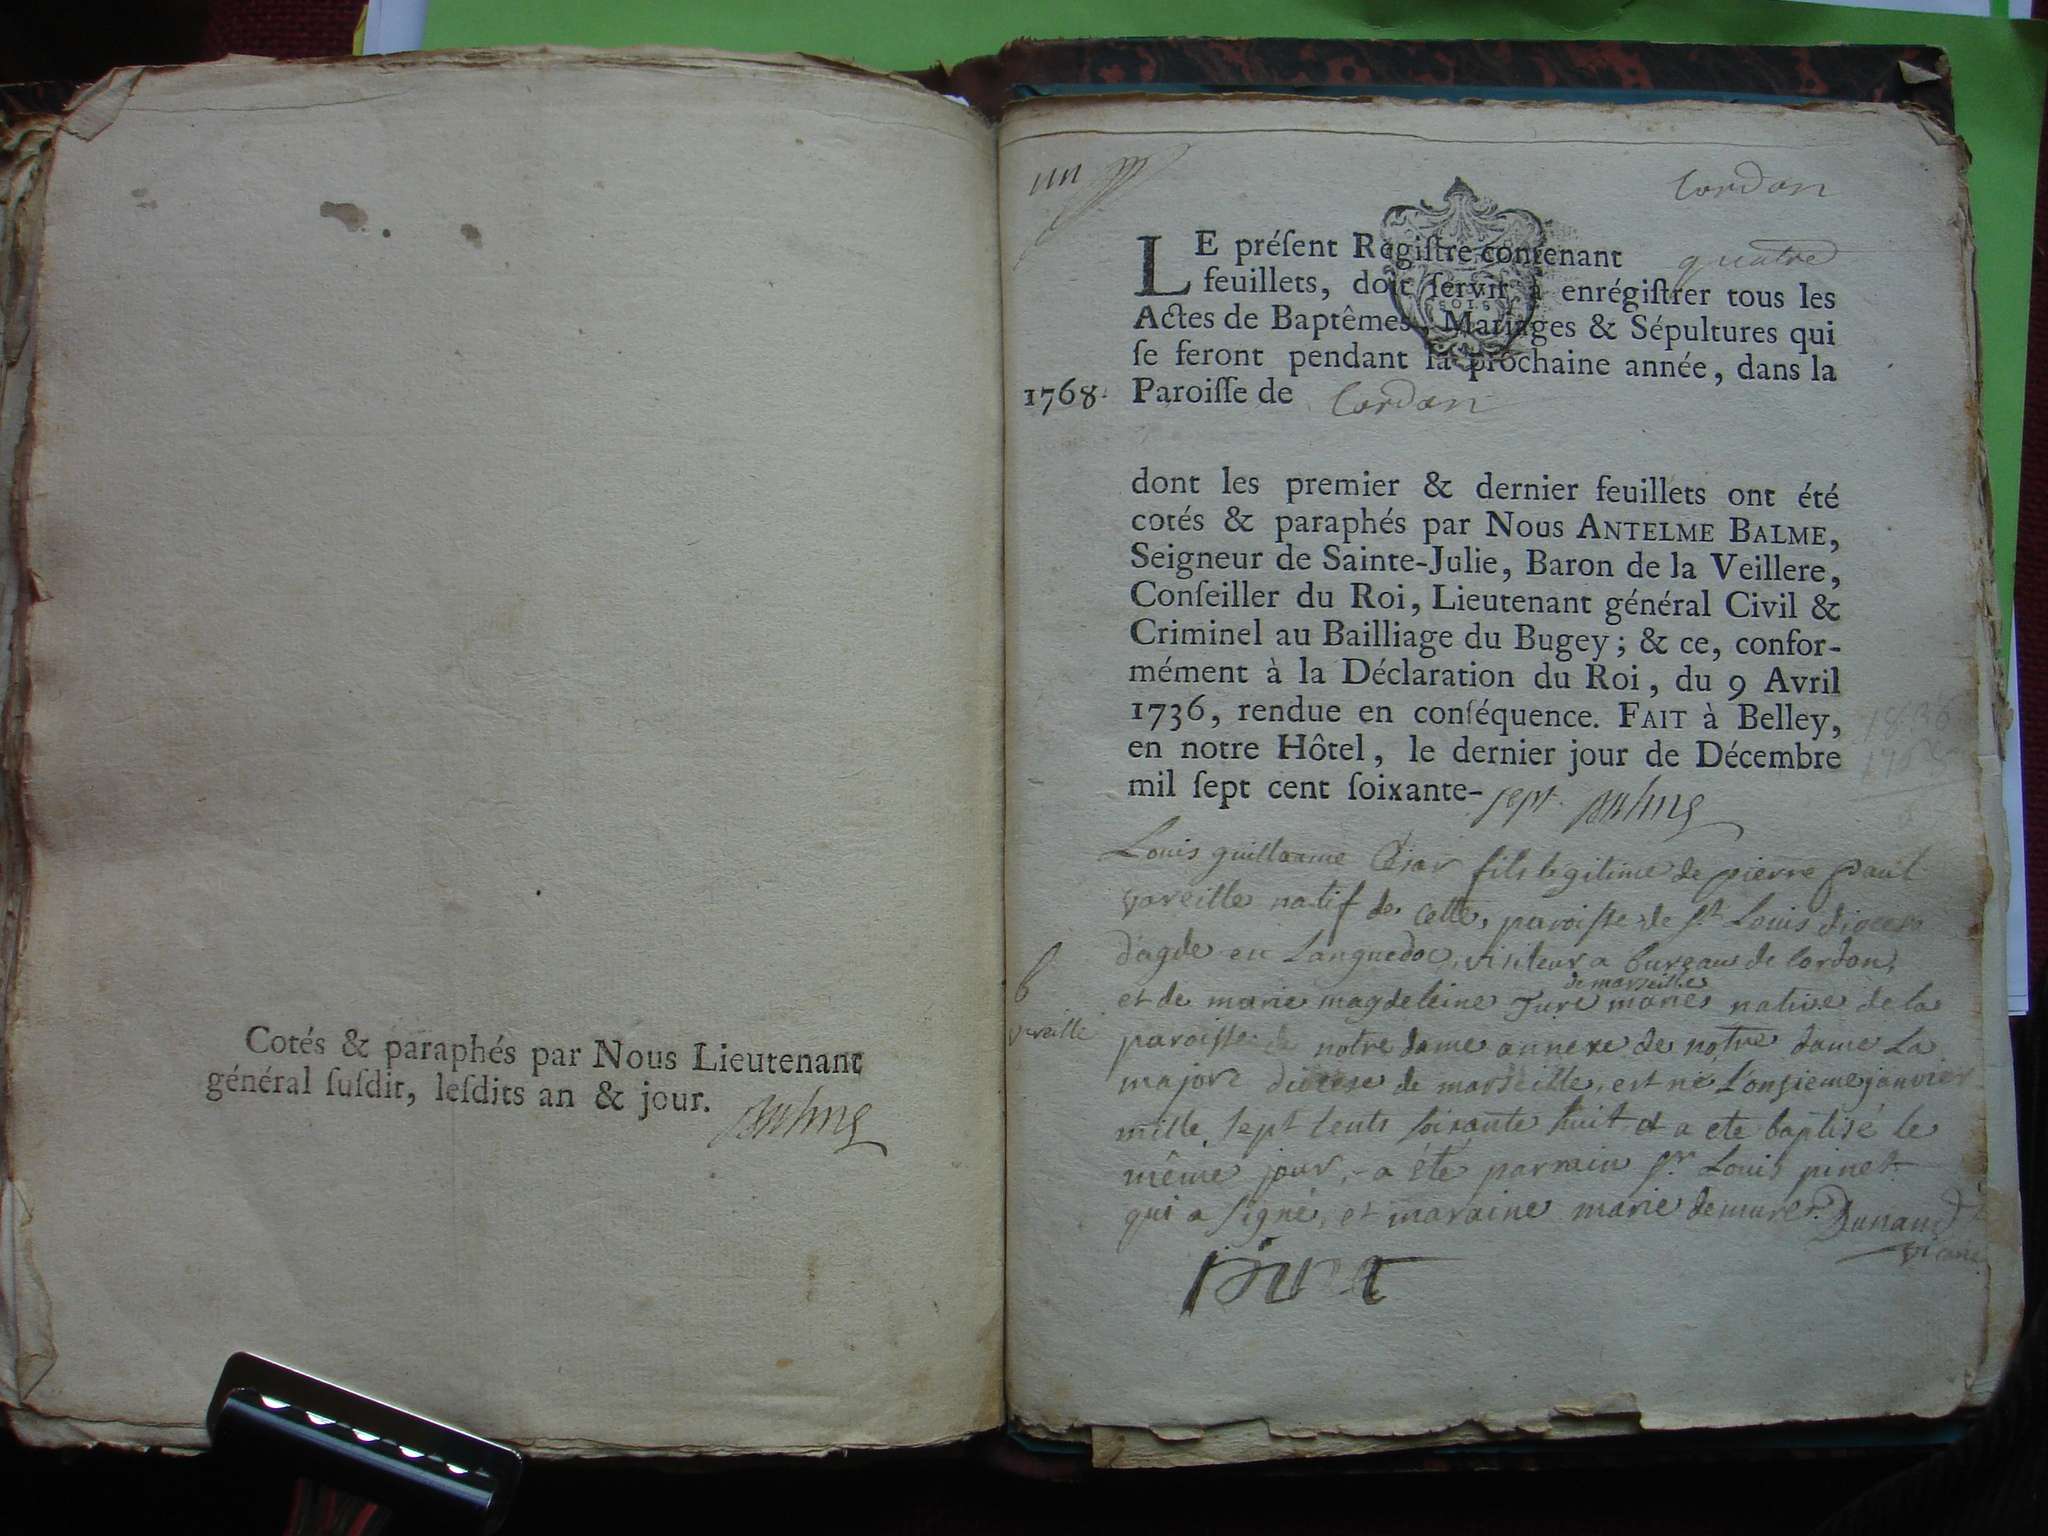 Cotés & paraphés par Nous Lieutenant
général ſuſdit, leſdits an & jour.
Cordon
LE préſent Regiſtre contenant quatre
feuillets, doit ſervir à enrégiſtrer tous les
Actes de Baptêmes, Mariages & Sépultures qui
ſe feront pendant la prochaine année, dans la
1768. Paroiſſe de Cordon
dont les premier & dernier feuillets ont été
cotés & paraphés par Nous ANTELME BALME,
Seigneur de Sainte-Julie, Baron de la Veillere,
Conſeiller du Roi, Lieutenant général Civil &
Criminel au Bailliage du Bugey ; & ce, confor-
mément à la Déclaration du Roi, du 9 Avril
1736, rendue en conſéquence. FAIT à Belley,
en notre Hôtel, le dernier jour de Décembre
mil ſept cent ſoixante-sept
Louis guillaume César fils legitime de pierre paul
vareille natif de Cette, paroisse de st Louis diocese
d'agde en Languedoc, visiteur a bureau de Cordon,
de marseille
et de marie magdeleine mariés native de la
paroisse de notre dame annexe de notre dame La
majore diocese de marseille, est né L'onzieme janvier
mille sept cents soixante huit et a été baptisé le
même jour, a été parrain sr Louis pinet
qui a signé, et maraine marie demure. Dunand
vicaire
b
vareille
pinet